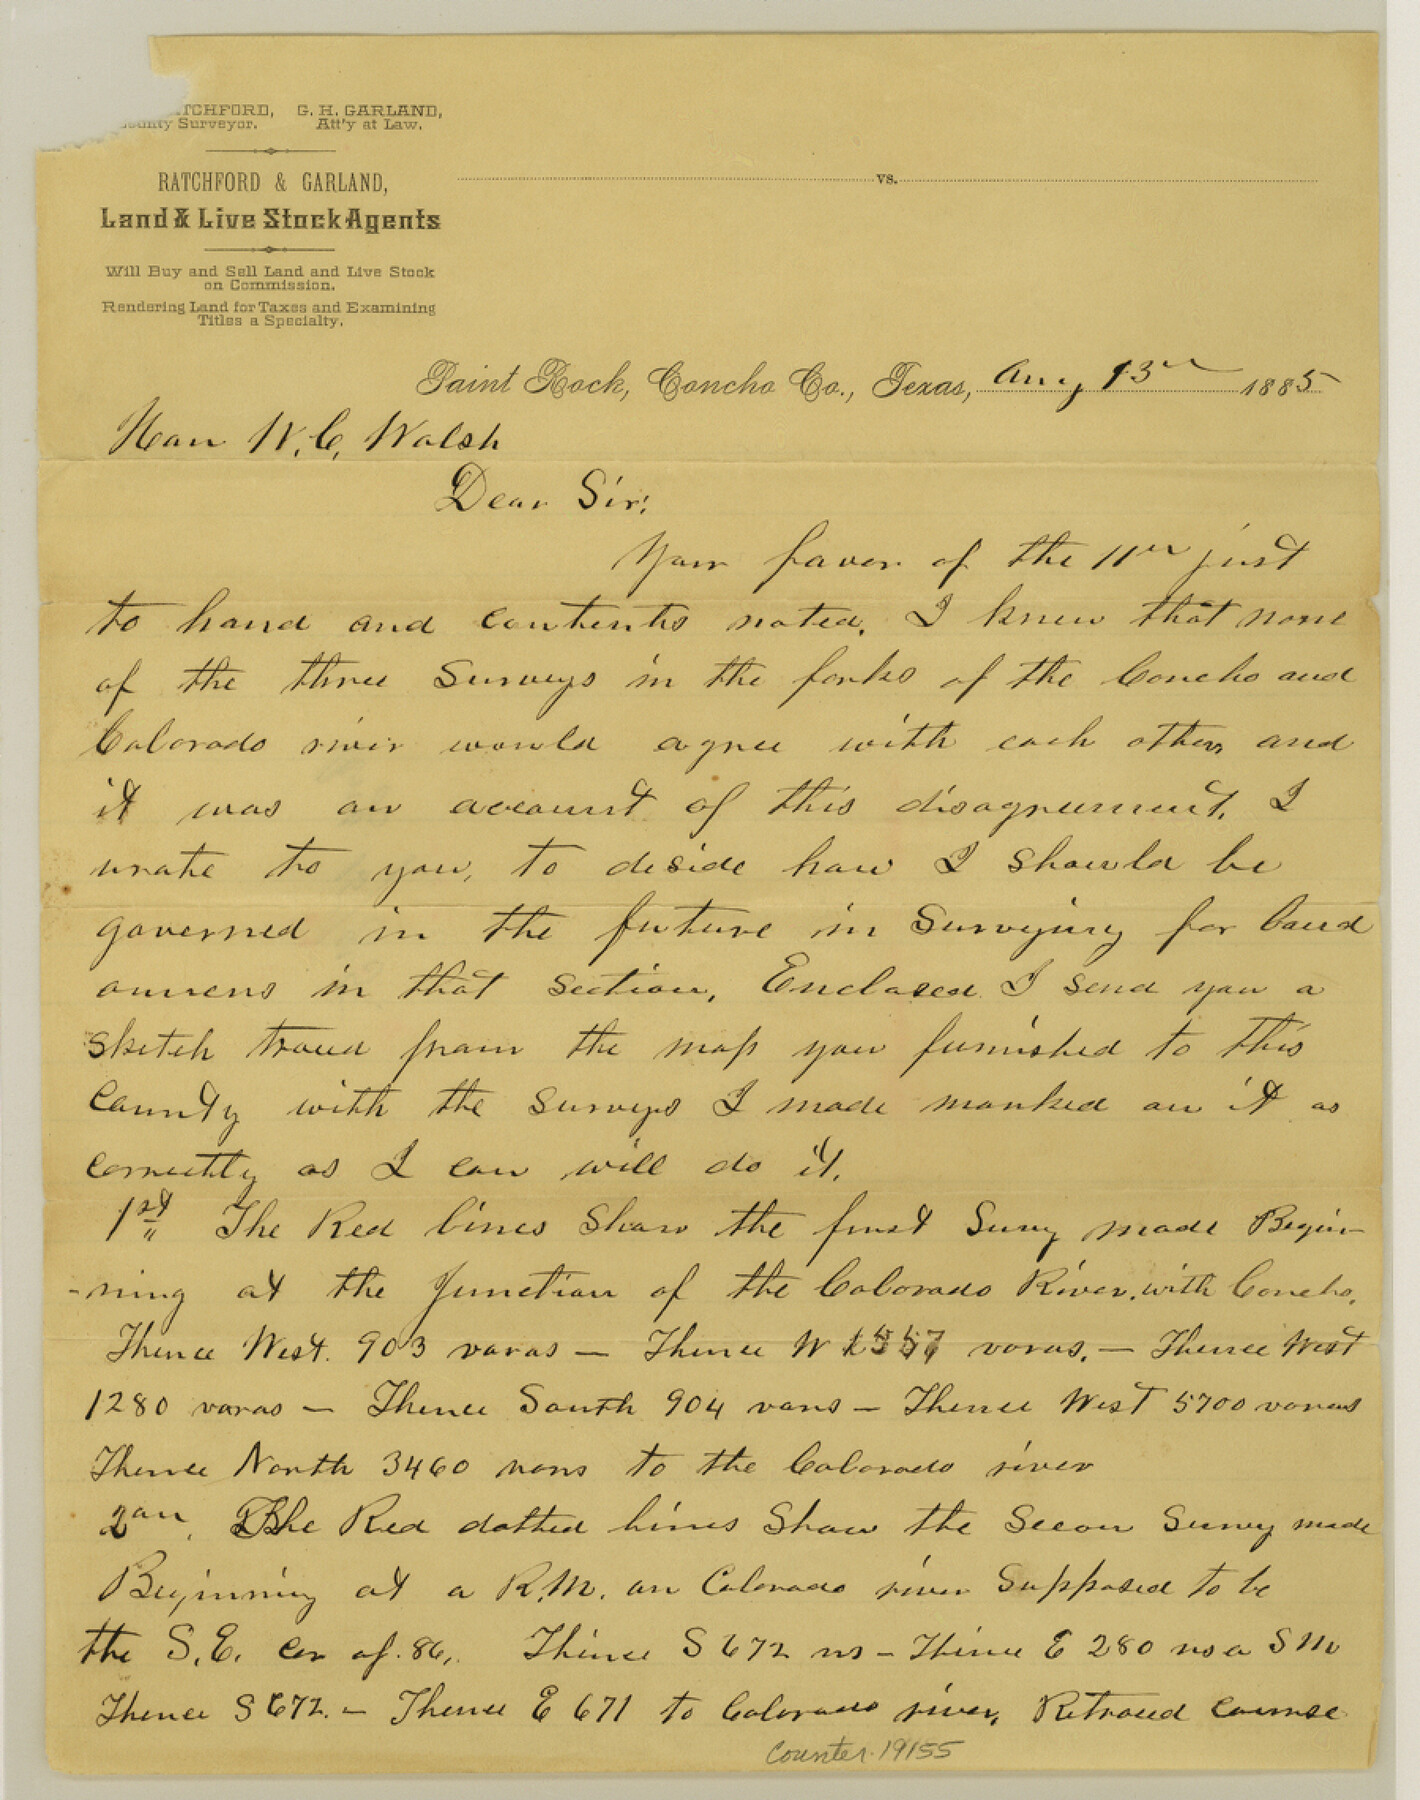 ATCHFORD, G. H. GARLAND,
County Surveyor. Att'y at Law.
RATCHFORD & GARLAND,
Land & Live Stock Agents
vs.
Will Buy and Sell Land and Live Stock
on Commission.
Rendering Land for Taxes and Examining
Titles a Specialty.
Paint Rock, Concho Co., Texas, Aug 13th 1885
Hon W. C. Walsh
Dear Sir:
Your favor of the 11th just
to hand and contents noted. I knew that none
of the three Surveys in the forks of the Concho and
Colorado river would agree with each other, and
it was on account of this disagreement, I
wrote to you, to deside how I should be
governed in the future in Surveying for land
owners in that section, Enclosed I send you a
sketch traced from the map you furnished to this
county with the surveys I made marked on it as
correctly as I can will do it.
1st The Red lines Show the first Survy made Begin-
-ning at the Junction of the Colorado River, with Concho.
Thence West. 903 varas — Thence W varas. — Thence West
1280 varas — Thence South 904 vars — Thence West 5700 varas
Thence North 3460 vars to the Colorado river
2nd. The Red dotted lines Show the Secon Survy made
Beginning at a R.M. on Colorado river Supposed to be
the S.E. Cor of 86, Thence S 672 vrs — Thence E 280 vrs a S M
Thence S 672. — Thence E 671 to Colorado river, Retraced course
Counter 19155